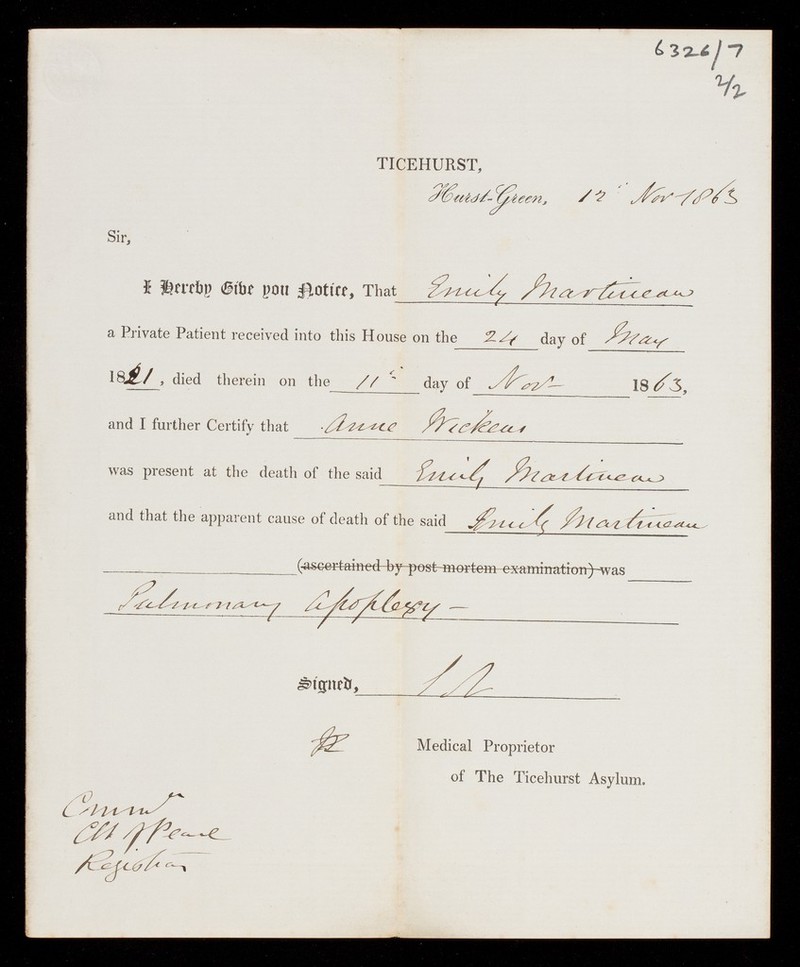 6326/7
2/2
TICEHURST,
Hurst-Green, 12th Nov 1863
Sir,
I Hereby Give you Notice, That Emily Martineau
a Private Patient received into this House on the 24 day of May
1821, died therein on the 11th day of Nov 1863,
and I further Certify that Anne Wickens
was present at the death of the said Emily Martineau
and that the apparent cause of death of the said Emily Martineau
(ascertained by post mortem examination) was
Pulmonary Apoplexy –
Signed,
Medical Proprietor
of The Ticehurst Asylum.
Clk of Peace
Registrar